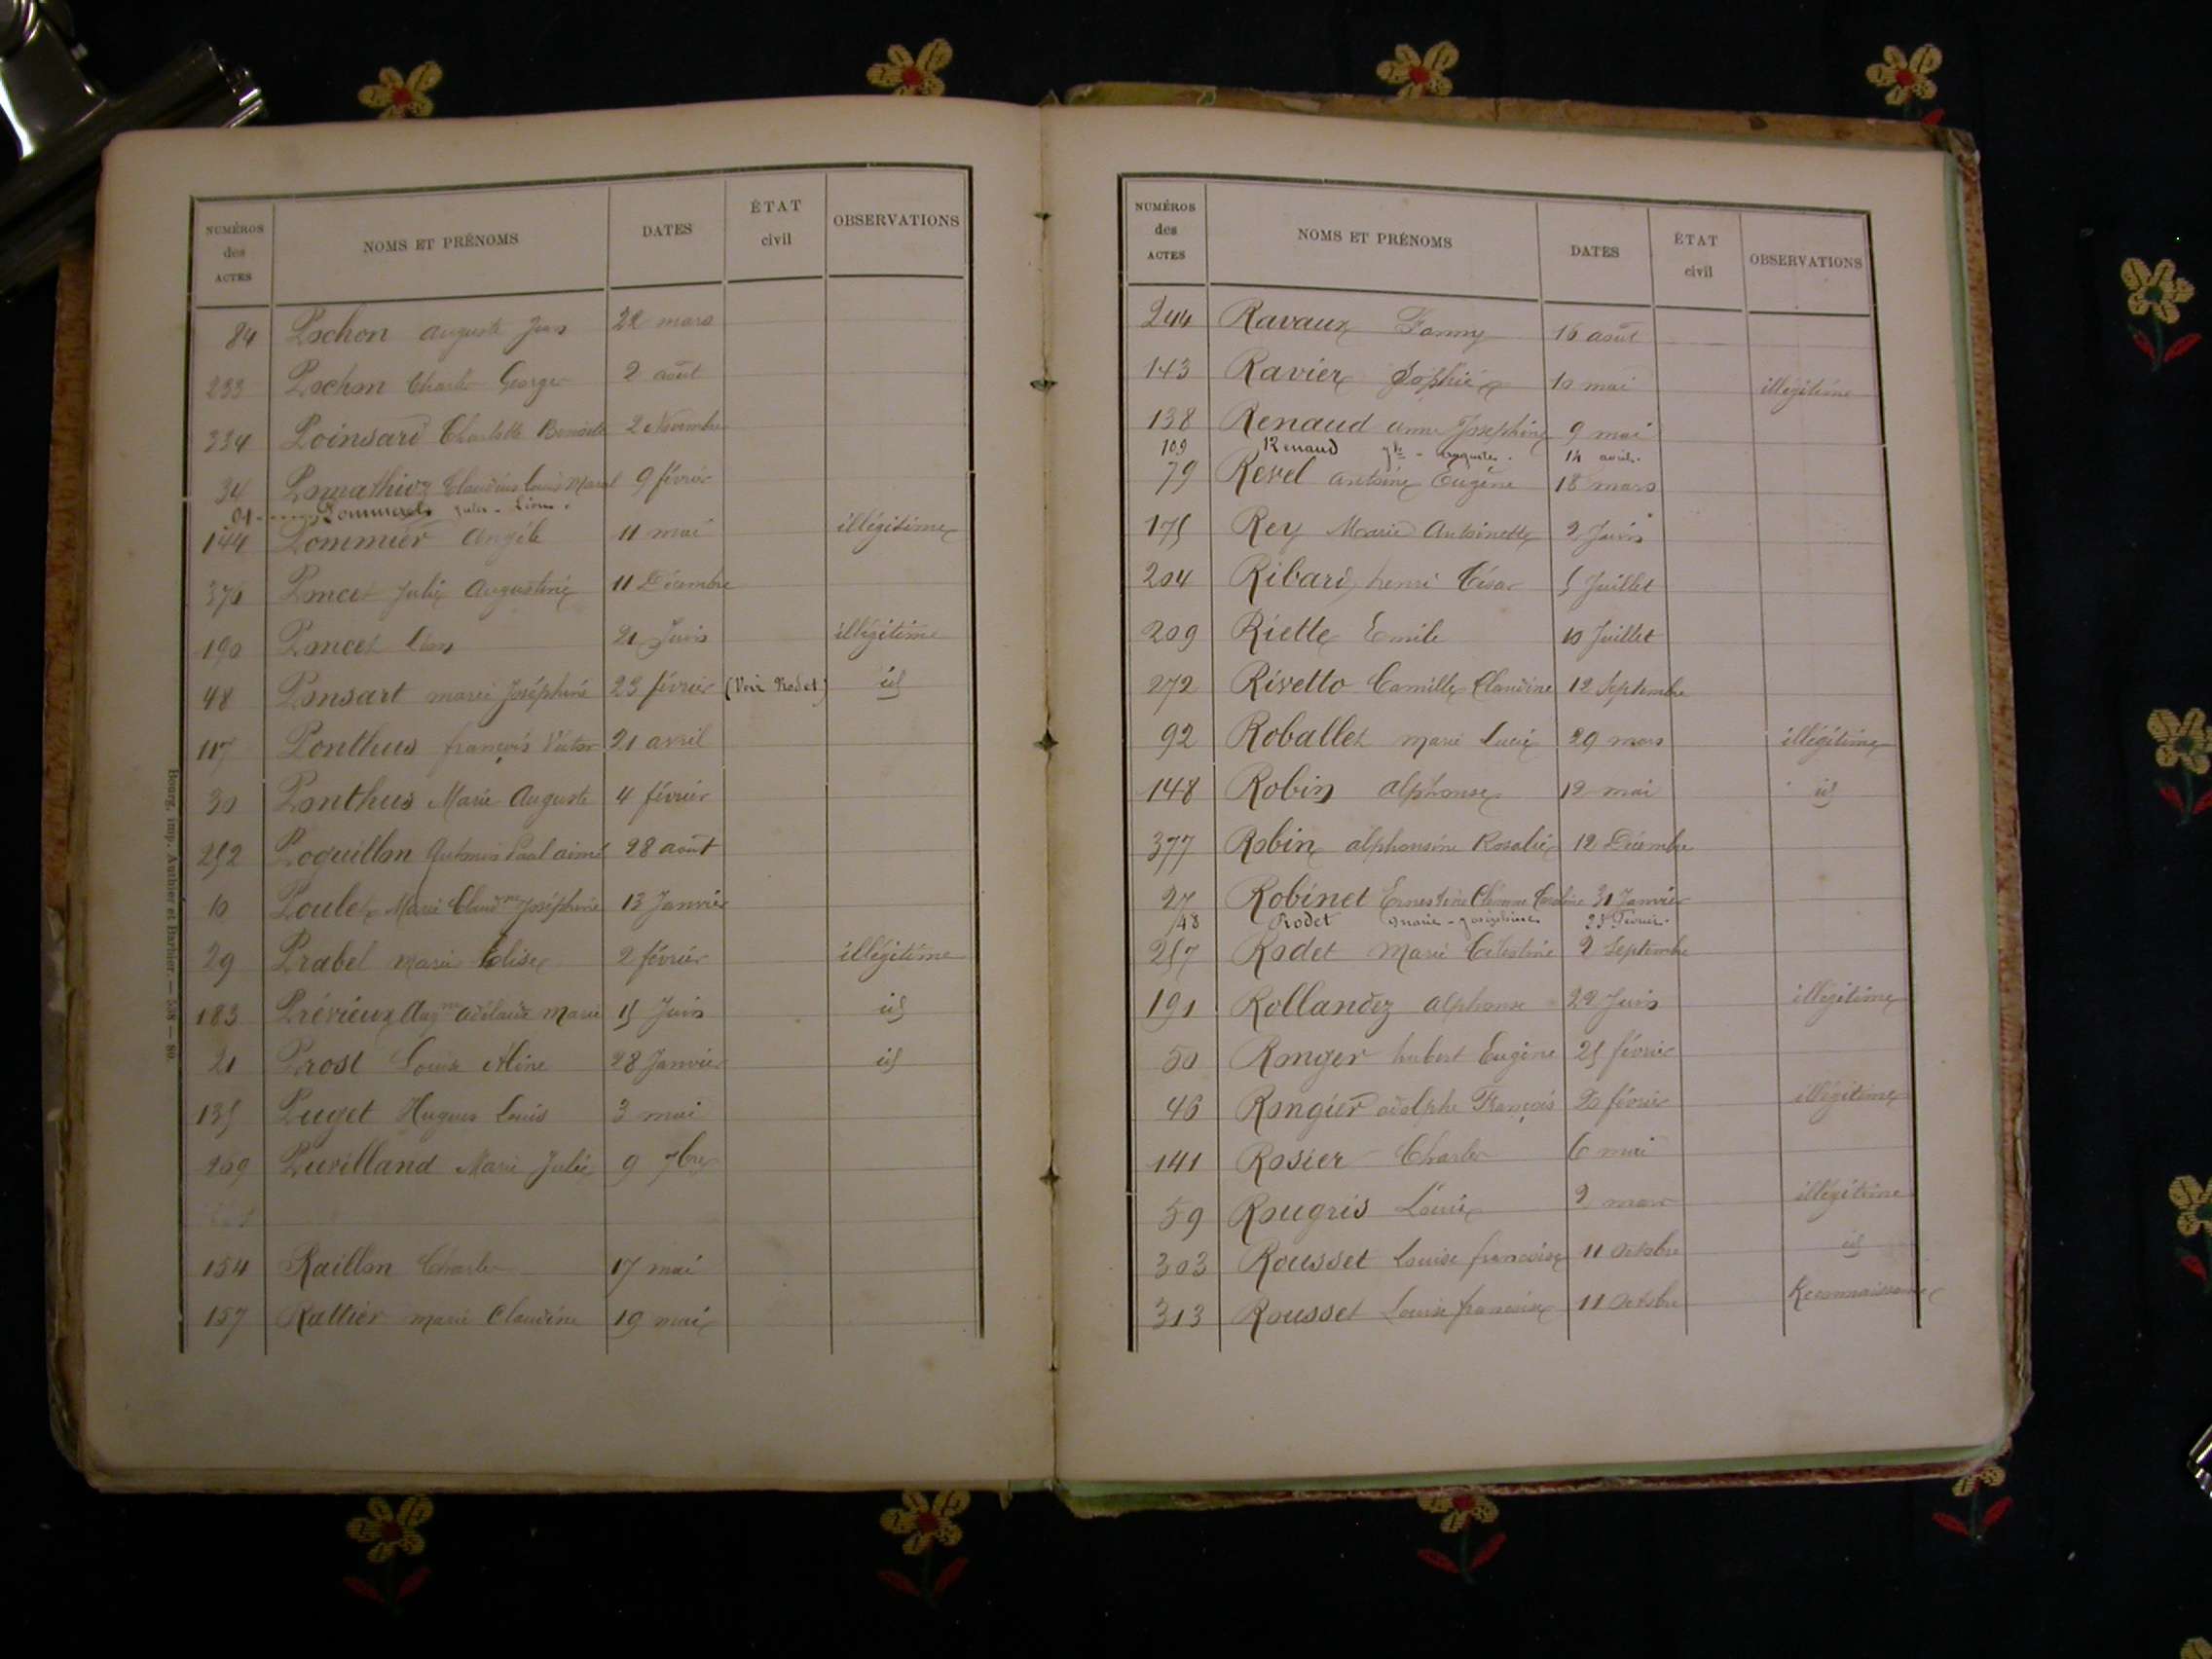 NUMÉROS des ACTES NOMS ET PRÉNOMS DATES ÉTAT civil OBSERVATIONS
84 Pochon Auguste Jean 22 mars
233 Pochon Charles Georges 2 août
334 Poinsard Charlotte Benoite 2 Novembre
34 Pomathioz Claudius Louis Marcel 9 février
91 Pommerel Jules - Léon.
144 Pommier Angèle 11 mai illégitime
376 Poncet Julie Augustine 11 Décembre
190 Poncet Léon 21 Juin illégitime
48 Ponsart marie Joséphine 23 février (Voir Rodet) id
117 Ponthus françois Victor 21 avril
30 Ponthus Marie Auguste 4 février
252 Poquillon Antonin Paul aimé 28 août
10 Poulet Marie Claudne Joséphine 13 Janvier
29 Prabel Marie Elise 2 février illégitime
183 Prévieux Augne adélaide Marie 15 Juin id
21 Prost Louise Aline 28 Janvier id
135 Puget Hugues Louis 3 mai
269 Puvilland Marie Julie 9 7bre
154 Raillon Charles 17 mai
157 Rattier marie Claudine 19 mai
Bourg, imp. Authier et Barbier. — 538 — 80.
NUMÉROS des ACTES NOMS ET PRÉNOMS DATES ÉTAT civil OBSERVATIONS
244 Ravaux Fanny 16 août
143 Ravier Sophie 10 mai illégitime
138 Renaud anne Joséphine 9 mai
109 Renaud Auguste. 14 avril.
79 Revel antoine Eugène 18 mars
175 Rey Marie Antoinette 2 Juin
204 Ribard henri César 5 Juillet
209 Riette Emile 10 Juillet
272 Rivetto Camille Claudine 12 Septembre
92 Roballet marie Lucie 29 mars illégitime
148 Robin alphonse 12 mai id
377 Robin alphonsine Rosalie 12 Décembre
27 Robinet Ernestine Clémence Caroline 31 Janvier
48 Rodet Marie - Joséphine 23 Février.
257 Rodet Marie Célestine 2 Septembre
191 Rollandez alphonse 22 Juin illégitime
50 Ronger hubert Eugène 25 février
46 Rongier adolphe François 20 février illégitime
141 Rosier Charles 6 mai
59 Rougris Louis 2 mars illégitime
303 Rousset Louise françoise 11 Octobre id
313 Rousset Louise françoise 11 Octobre Reconnaissance